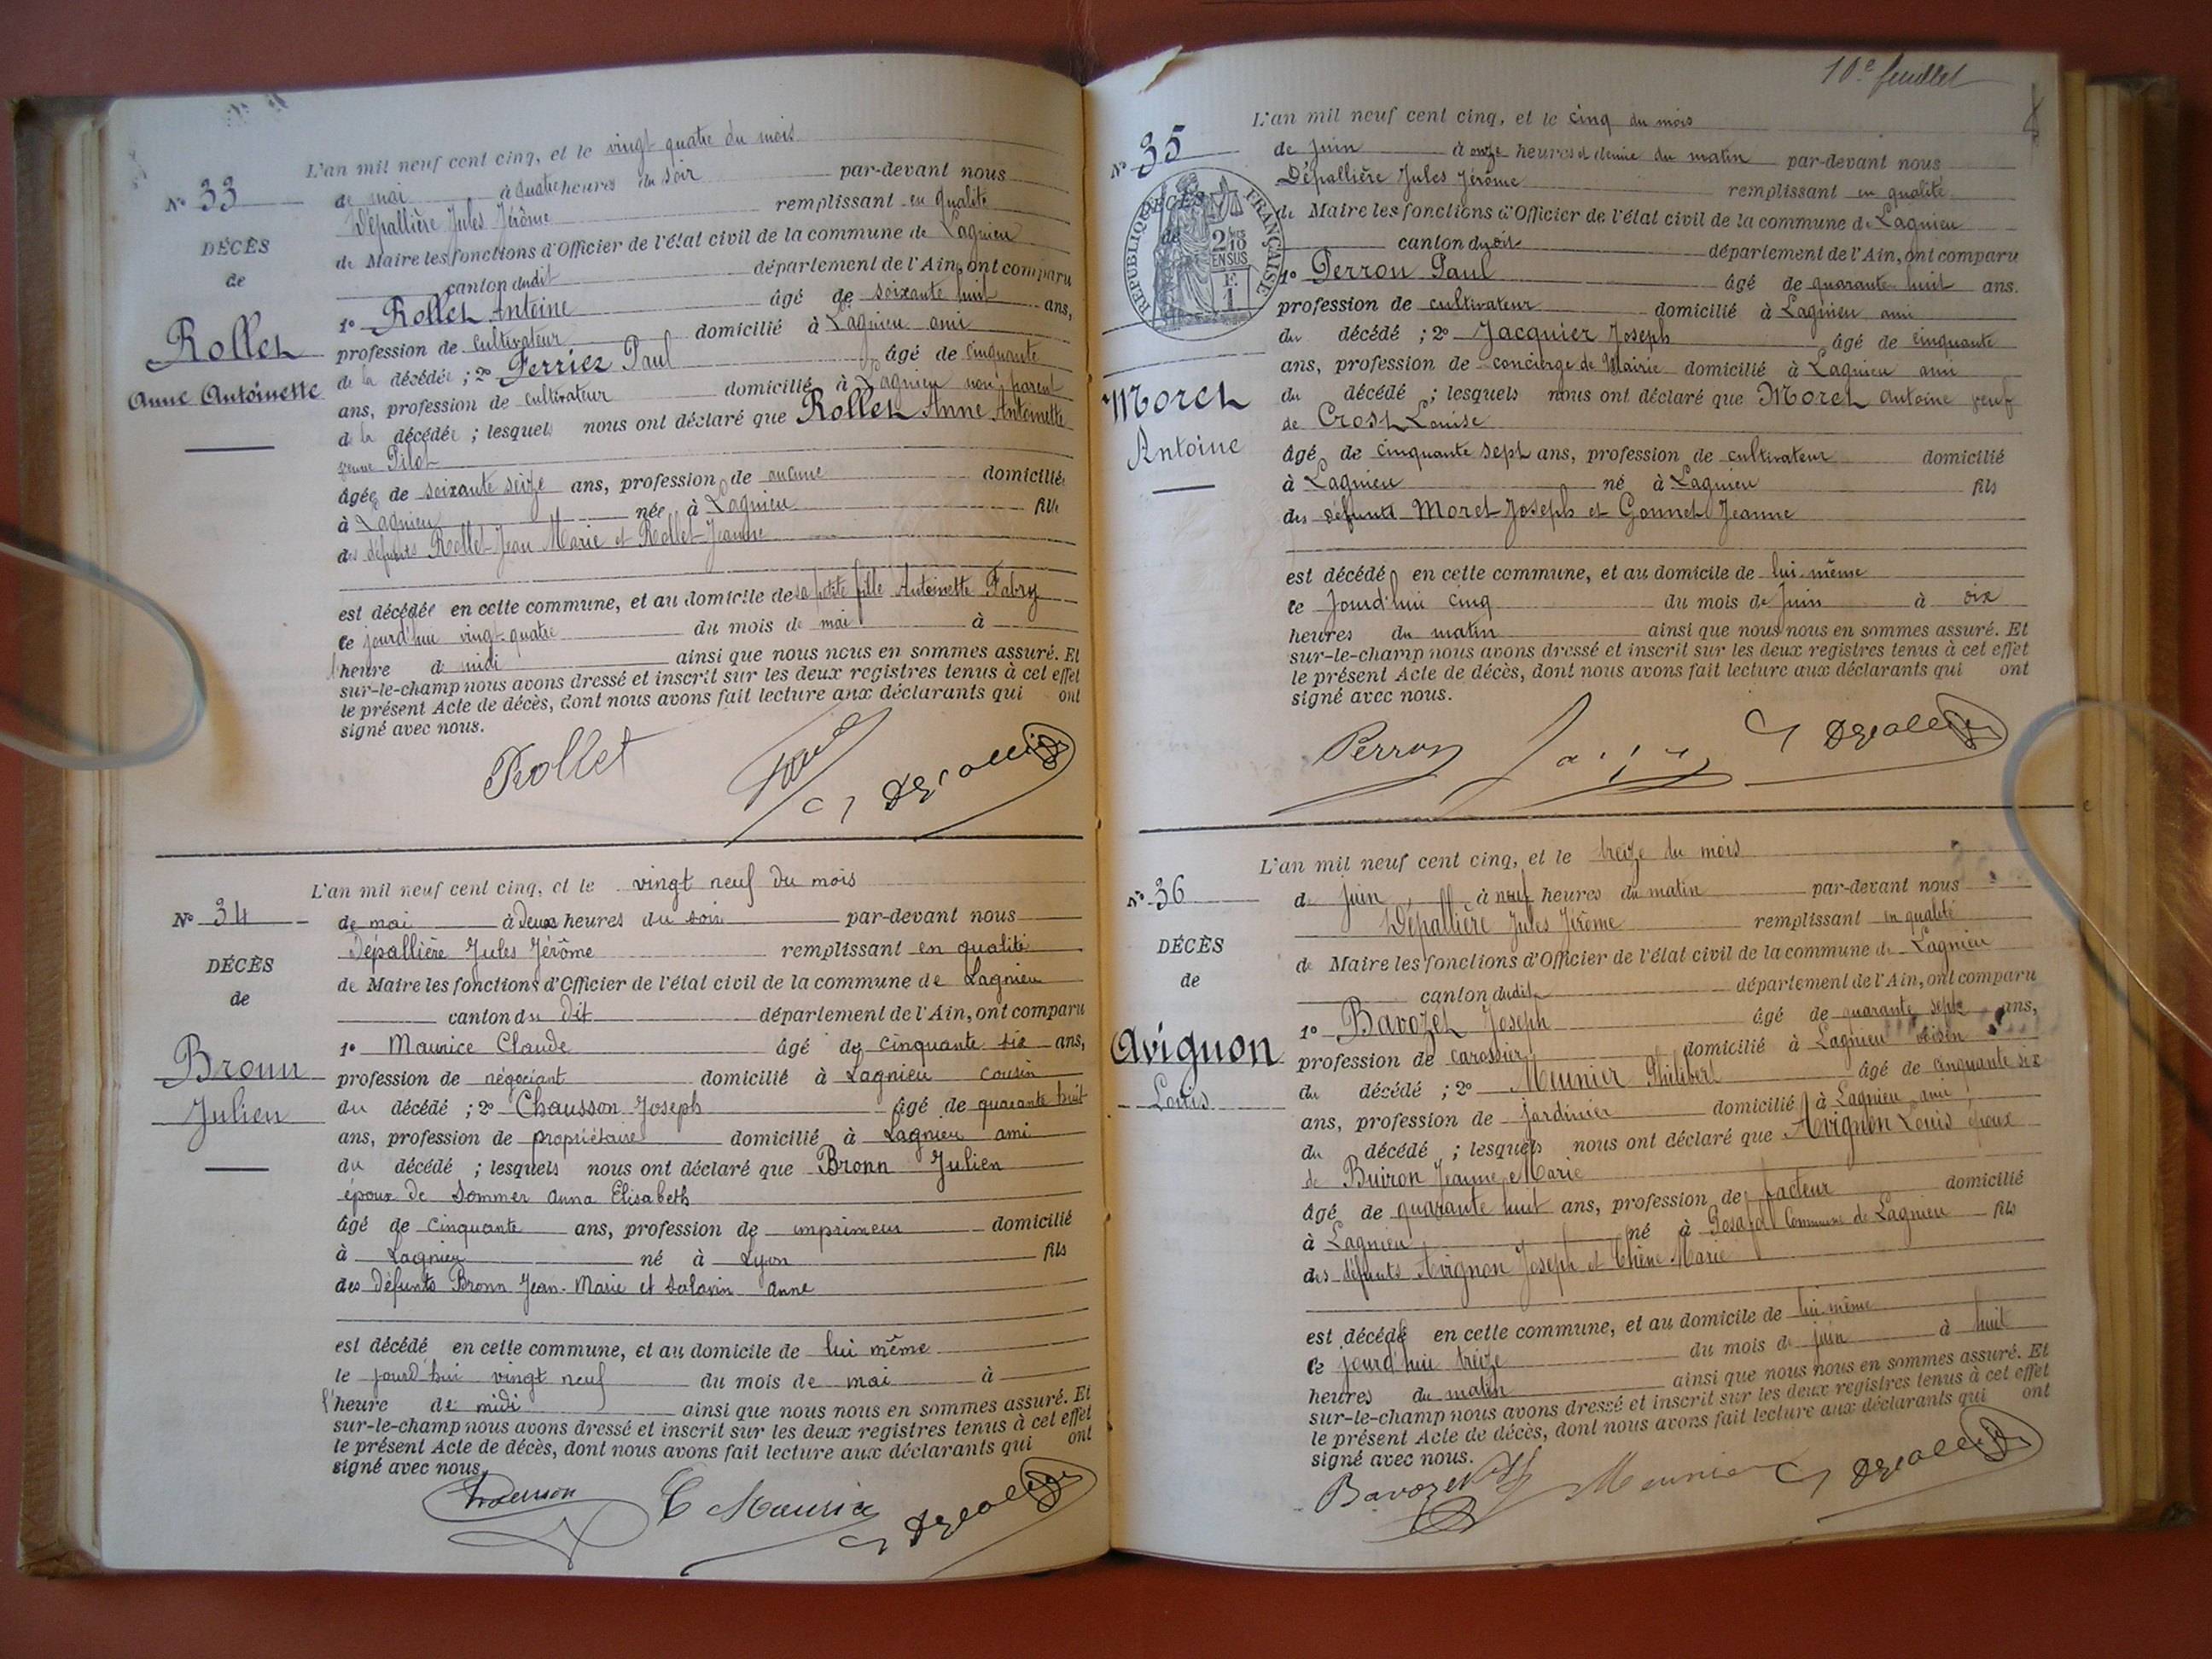 L'an mil neuf cent cinq, et le vingt quatre du mois
N° 33
de mai à quatre heures du soir par-devant nous
DÉCÈS
Dépallière Jules Jérôme remplissant en qualité
de
de Maire les fonctions d'Officier de l'état civil de la commune de Lagnieu
canton dudit département de l'Ain, ont comparu
Rollet
1° Rollet Antoine âgé de soixante huit ans,
Anne Antoinette
profession de cultivateur domicilié à Lagnieu ami
de la décédée ; 2° Ferrier Paul âgé de cinquante
ans, profession de cultivateur domicilié à Lagnieu non parent
de la décédée ; lesquels nous ont déclaré que Rollet Anne Antoinette
veuve Pilot
âgée de soixante seize ans, profession de aucune domiciliée
à Lagnieu née à Lagnieu fille
des défunts Rollet Jean Marie et Rollet Jeanne
est décédée en cette commune, et au domicile de sa petite fille Antoinette Fabry
le jourd'hui vingt-quatre du mois de mai à
heure de midi ainsi que nous nous en sommes assuré. Et
sur-le-champ nous avons dressé et inscrit sur les deux registres tenus à cet effet
le présent Acte de décès, dont nous avons fait lecture aux déclarants qui ont
signé avec nous.
Rollet
L'an mil neuf cent cinq, et le vingt neuf du mois
N° 34
de mai à deux heures du soir par-devant nous
DÉCÈS
Dépallière Jules Jérôme remplissant en qualité
de
de Maire les fonctions d'Officier de l'état civil de la commune de Lagnieu
canton du dit département de l'Ain, ont comparu
Bronn
Julien
1° Maurice Claude âgé de cinquante six ans,
profession de négociant domicilié à Lagnieu cousin
du décédé ; 2° Chausson Joseph âgé de quarante huit
ans, profession de propriétaire domicilié à Lagnieu ami
du décédé ; lesquels nous ont déclaré que Bronn Julien
époux de Sommer Anna Elisabeth
âgé de cinquante ans, profession de imprimeur domicilié
à Lagnieu né à Lyon fils
des défunts Bronn Jean-Marie et Salavin Anne
est décédé en cette commune, et au domicile de lui même
le jourd'hui vingt neuf du mois de mai à
l'heure de midi ainsi que nous nous en sommes assuré. Et
sur-le-champ nous avons dressé et inscrit sur les deux registres tenus à cet effet
le présent Acte de décès, dont nous avons fait lecture aux déclarants qui ont
signé avec nous.
C Maurice
10e feuillet
L'an mil neuf cent cinq, et le cinq du mois
N° 35
de juin à onze heures et demie du matin par-devant nous
DÉCÈS
Dépallière Jules Jérôme remplissant en qualité
de
RÉPUBLIQUE FRANÇAISE
2/10 EN SUS
E. 1
de Maire les fonctions d'Officier de l'état civil de la commune de Lagnieu
canton dudit département de l'Ain, ont comparu
1° Perron Paul âgé de quarante huit ans.
profession de cultivateur domicilié à Lagnieu ami
du décédé ; 2° Jacquier Joseph âgé de cinquante
ans, profession de concierge de Mairie domicilié à Lagnieu ami
Moret
Antoine
du décédé ; lesquels nous ont déclaré que Moret Antoine veuf
de Crost Louise
âgé de cinquante sept ans, profession de cultivateur domicilié
à Lagnieu né à Lagnieu fils
des défunts Moret Joseph et Gonnet Jeanne
est décédé en cette commune, et au domicile de lui-même
le jourd'hui cinq du mois de juin à six
heures du matin ainsi que nous nous en sommes assuré. Et
sur-le-champ nous avons dressé et inscrit sur les deux registres tenus à cet effet
le présent Acte de décès, dont nous avons fait lecture aux déclarants qui ont
signé avec nous.
Perron
L'an mil neuf cent cinq, et le treize du mois
N° 36
de juin à neuf heures du matin par-devant nous
DÉCÈS
Dépallière Jules Jérôme remplissant en qualité
de
de Maire les fonctions d'Officier de l'état civil de la commune de Lagnieu
canton dudit département de l'Ain, ont comparu
Avignon
Louis
1° Bavozet Joseph âgé de quarante sept ans,
profession de carossier domicilié à Lagnieu voisin
du décédé ; 2° Meunier Philibert âgé de cinquante six
ans, profession de jardinier domicilié à Lagnieu ami
du décédé ; lesquels nous ont déclaré que Avignon Louis époux
de Buiron Jeanne Marie
âgé de quarante huit ans, profession de facteur domicilié
à Lagnieu né à Commune de Lagnieu fils
des défunts Avignon Joseph et Chêne Marie
est décédé en cette commune, et au domicile de lui-même
le jourd'hui treize du mois de juin à huit
heures du matin ainsi que nous nous en sommes assuré. Et
sur-le-champ nous avons dressé et inscrit sur les deux registres tenus à cet effet
le présent Acte de décès, dont nous avons fait lecture aux déclarants qui ont
signé avec nous.
Bavozet Meunier